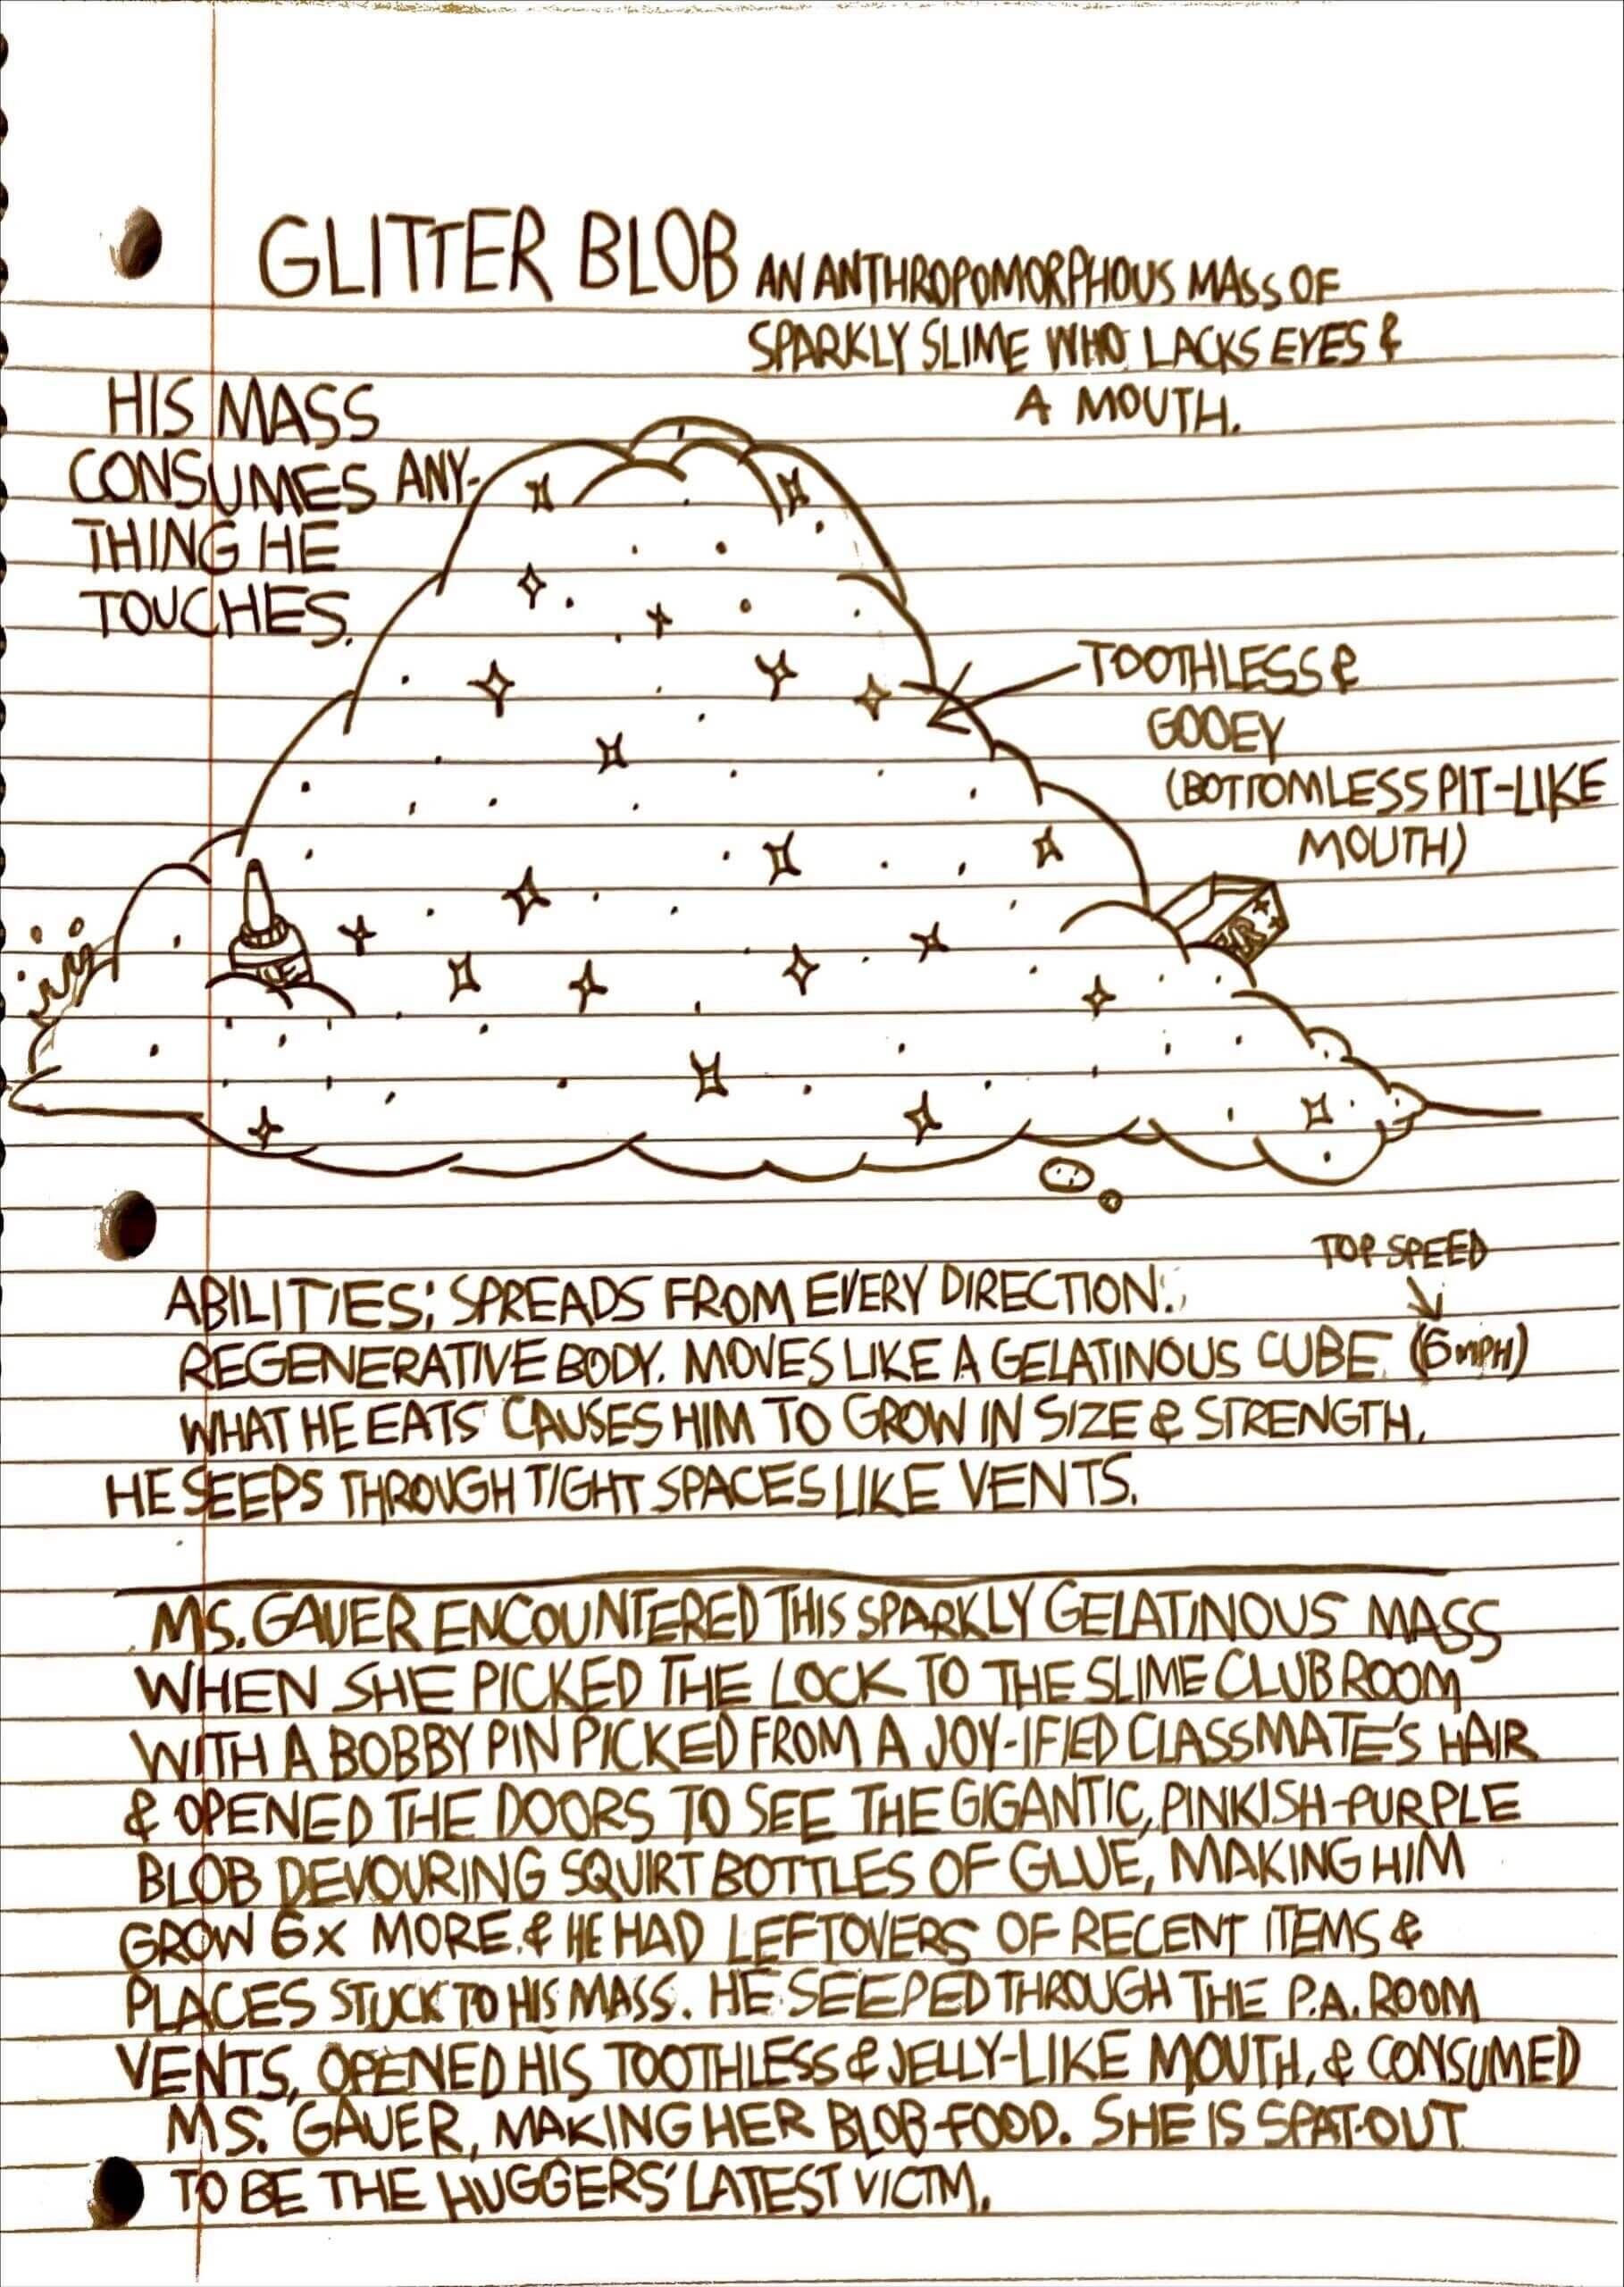 GLITTER BLOB AN ANTHROPOMORPHOUS MASS OF
SPARKLY SLIME WHO LACKS EYES &
A MOUTH.
HIS MASS
CONSUMES ANY-
THING HE
TOUCHES.
TOOTHLESS &
GOOEY
(BOTTOMLESS PIT-LIKE
MOUTH)
TOP SPEED
ABILITIES: SPREADS FROM EVERY DIRECTION.
REGENERATIVE BODY. MOVES LIKE A GELATINOUS CUBE. (6mPH)
WHAT HE EATS CAUSES HIM TO GROW IN SIZE & STRENGTH.
HE SEEPS THROUGH TIGHT SPACES LIKE VENTS.
MS. GAUER ENCOUNTERED THIS SPARKLY GELATINOUS MASS
WHEN SHE PICKED THE LOCK TO THE SLIME CLUB ROOM
WITH A BOBBY PIN PICKED FROM A JOY-IFIED CLASSMATE'S HAIR
& OPENED THE DOORS TO SEE THE GIGANTIC, PINKISH-PURPLE
BLOB DEVOURING SQUIRT BOTTLES OF GLUE, MAKING HIM
GROW 6x MORE. & HE HAD LEFTOVERS OF RECENT ITEMS &
PLACES STUCK TO HIS MASS. HE SEEPED THROUGH THE P.A. ROOM
VENTS, OPENED HIS TOOTHLESS & JELLY-LIKE MOUTH, & CONSUMED
MS. GAUER, MAKING HER BLOB-FOOD. SHE IS SPAT-OUT
TO BE THE HUGGERS' LATEST VICTM.